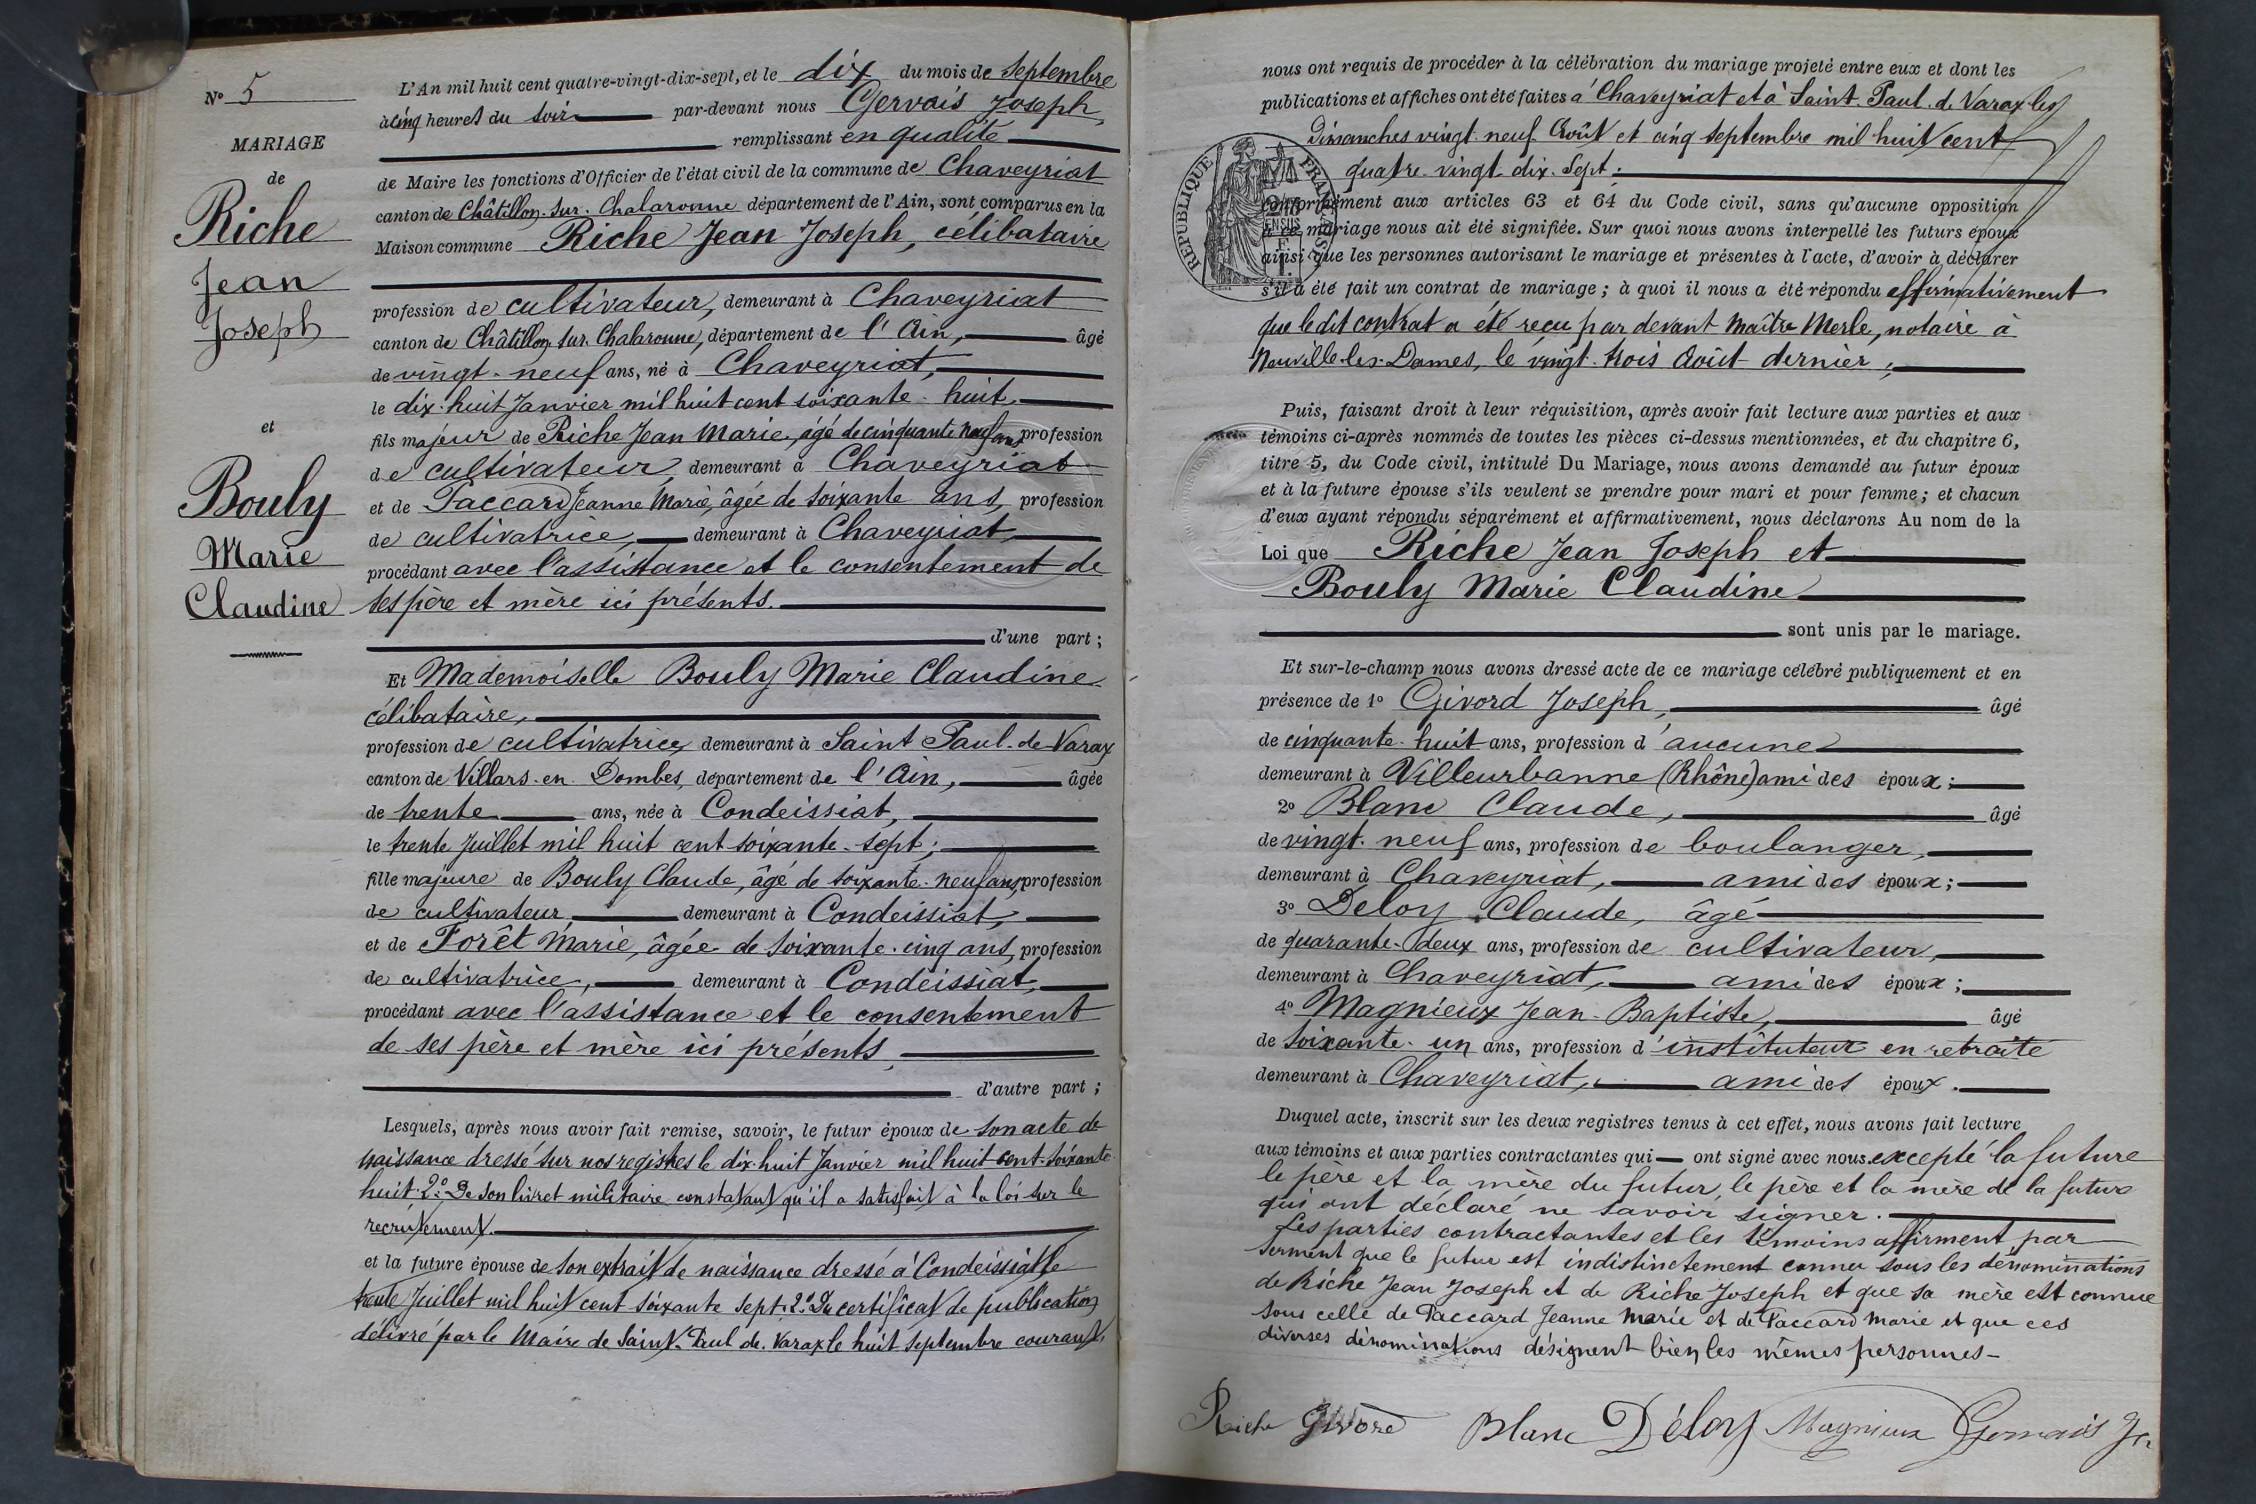 N° 5
MARIAGE
de
Riche
Jean
Joseph
et
Bouly
Marie
Claudine
L'An mil huit cent quatre-vingt-dix-sept, et le dix du mois de Septembre
à cinq heures du soir par-devant nous Gervais Joseph,
remplissant en qualité
de Maire les fonctions d'Officier de l'état civil de la commune de Chaveyriat
canton de Châtillon-sur-Chalaronne département de l'Ain, sont comparus en la
Maison commune Riche Jean Joseph, célibataire
profession de cultivateur, demeurant à Chaveyriat
canton de Châtillon sur Chalaronne, département de l'Ain, âgé
de vingt-neuf ans, né à Chaveyriat,
le dix-huit Janvier mil huit cent soixante-huit,
fils majeur de Riche Jean Marie, âgé de cinquante neuf ans, profession
de cultivateur, demeurant à Chaveyriat
et de Paccard Jeanne Marie, âgée de soixante ans, profession
de cultivatrice, demeurant à Chaveyriat,
procédant avec l'assistance et le consentement de
ses père et mère ici présents.
d'une part ;
Et Mademoiselle Bouly Marie Claudine
célibataire,
profession de cultivatrice, demeurant à Saint Paul-de-Varax
canton de Villars-en-Dombes, département de l'Ain, âgée
de trente ans, née à Condeissiat,
le trente Juillet mil huit cent soixante-sept ;
fille majeure de Bouly Claude, âgé de soixante-neuf ans, profession
de cultivateur demeurant à Condeissiat,
et de Forêt Marie, âgée de soixante-cinq ans, profession
de cultivatrice, demeurant à Condeissiat,
procédant avec l'assistance et le consentement
de ses père et mère ici présents
d'autre part ;
Lesquels, après nous avoir fait remise, savoir, le futur époux de son acte de
naissance dressé sur nos registres le dix-huit Janvier mil huit cent soixante
huit. 2° De son livret militaire constatant qu'il a satisfait à la loi sur le
recrutement.
et la future épouse de son extrait de naissance dressé à Condeissiat le
trente Juillet mil huit cent soixante sept. 2° Du certificat de publication
délivré par le Maire de Saint-Paul de Varax le huit septembre courant,
nous ont requis de procéder à la célébration du mariage projeté entre eux et dont les
publications et affiches ont été faites à Chaveyriat et à Saint-Paul-de Varax les
Dimanches vingt-neuf Août et cinq septembre mil huit cent
quatre-vingt-dix-Sept ;
RÉPUBLIQUE FRANÇAISE
conformément aux articles 63 et 64 du Code civil, sans qu'aucune opposition
à ce mariage nous ait été signifiée. Sur quoi nous avons interpellé les futurs époux
ainsi que les personnes autorisant le mariage et présentes à l'acte, d'avoir à déclarer
s'il a été fait un contrat de mariage ; à quoi il nous a été répondu affirmativement
que le dit contrat a été reçu par devant Maître Merle, notaire à
Neuville-les-Dames, le vingt-trois Août dernier ;
Puis, faisant droit à leur réquisition, après avoir fait lecture aux parties et aux
témoins ci-après nommés de toutes les pièces ci-dessus mentionnées, et du chapitre 6,
titre 5, du Code civil, intitulé Du Mariage, nous avons demandé au futur époux
et à la future épouse s'ils veulent se prendre pour mari et pour femme ; et chacun
d'eux ayant répondu séparément et affirmativement, nous déclarons Au nom de la
Loi que Riche Jean Joseph et
Bouly Marie Claudine
sont unis par le mariage.
Et sur-le-champ nous avons dressé acte de ce mariage célébré publiquement et en
présence de 1° Givord Joseph, âgé
de cinquante-huit ans, profession d'aucune
demeurant à Villeurbanne (Rhône) ami des époux ;
2° Blanc Claude, âgé
de vingt-neuf ans, profession de boulanger,
demeurant à Chaveyriat, ami des époux ;
3° Deloy Claude, âgé
de quarante-deux ans, profession de cultivateur,
demeurant à Chaveyriat, ami des époux ;
4° Magnieux Jean-Baptiste, âgé
de soixante-un ans, profession d'instituteur en retraite
demeurant à Chaveyriat, ami des époux.
Duquel acte, inscrit sur les deux registres tenus à cet effet, nous avons fait lecture
aux témoins et aux parties contractantes qui ont signé avec nous excepté la future
le père et la mère du futur, le père et la mère de la future
qui ont déclaré ne savoir signer.
Les parties contractantes et les témoins affirment par
serment que le futur est indistinctement connu sous les dénominations
de Riche Jean Joseph et de Riche Joseph et que sa mère est connue
sous celle de Paccard Jeanne Marie et de Paccard Marie et que ces
diverses dénominations désignent bien les mêmes personnes -
Riche Givord Blanc Déloy Magnieux Gervais Jh